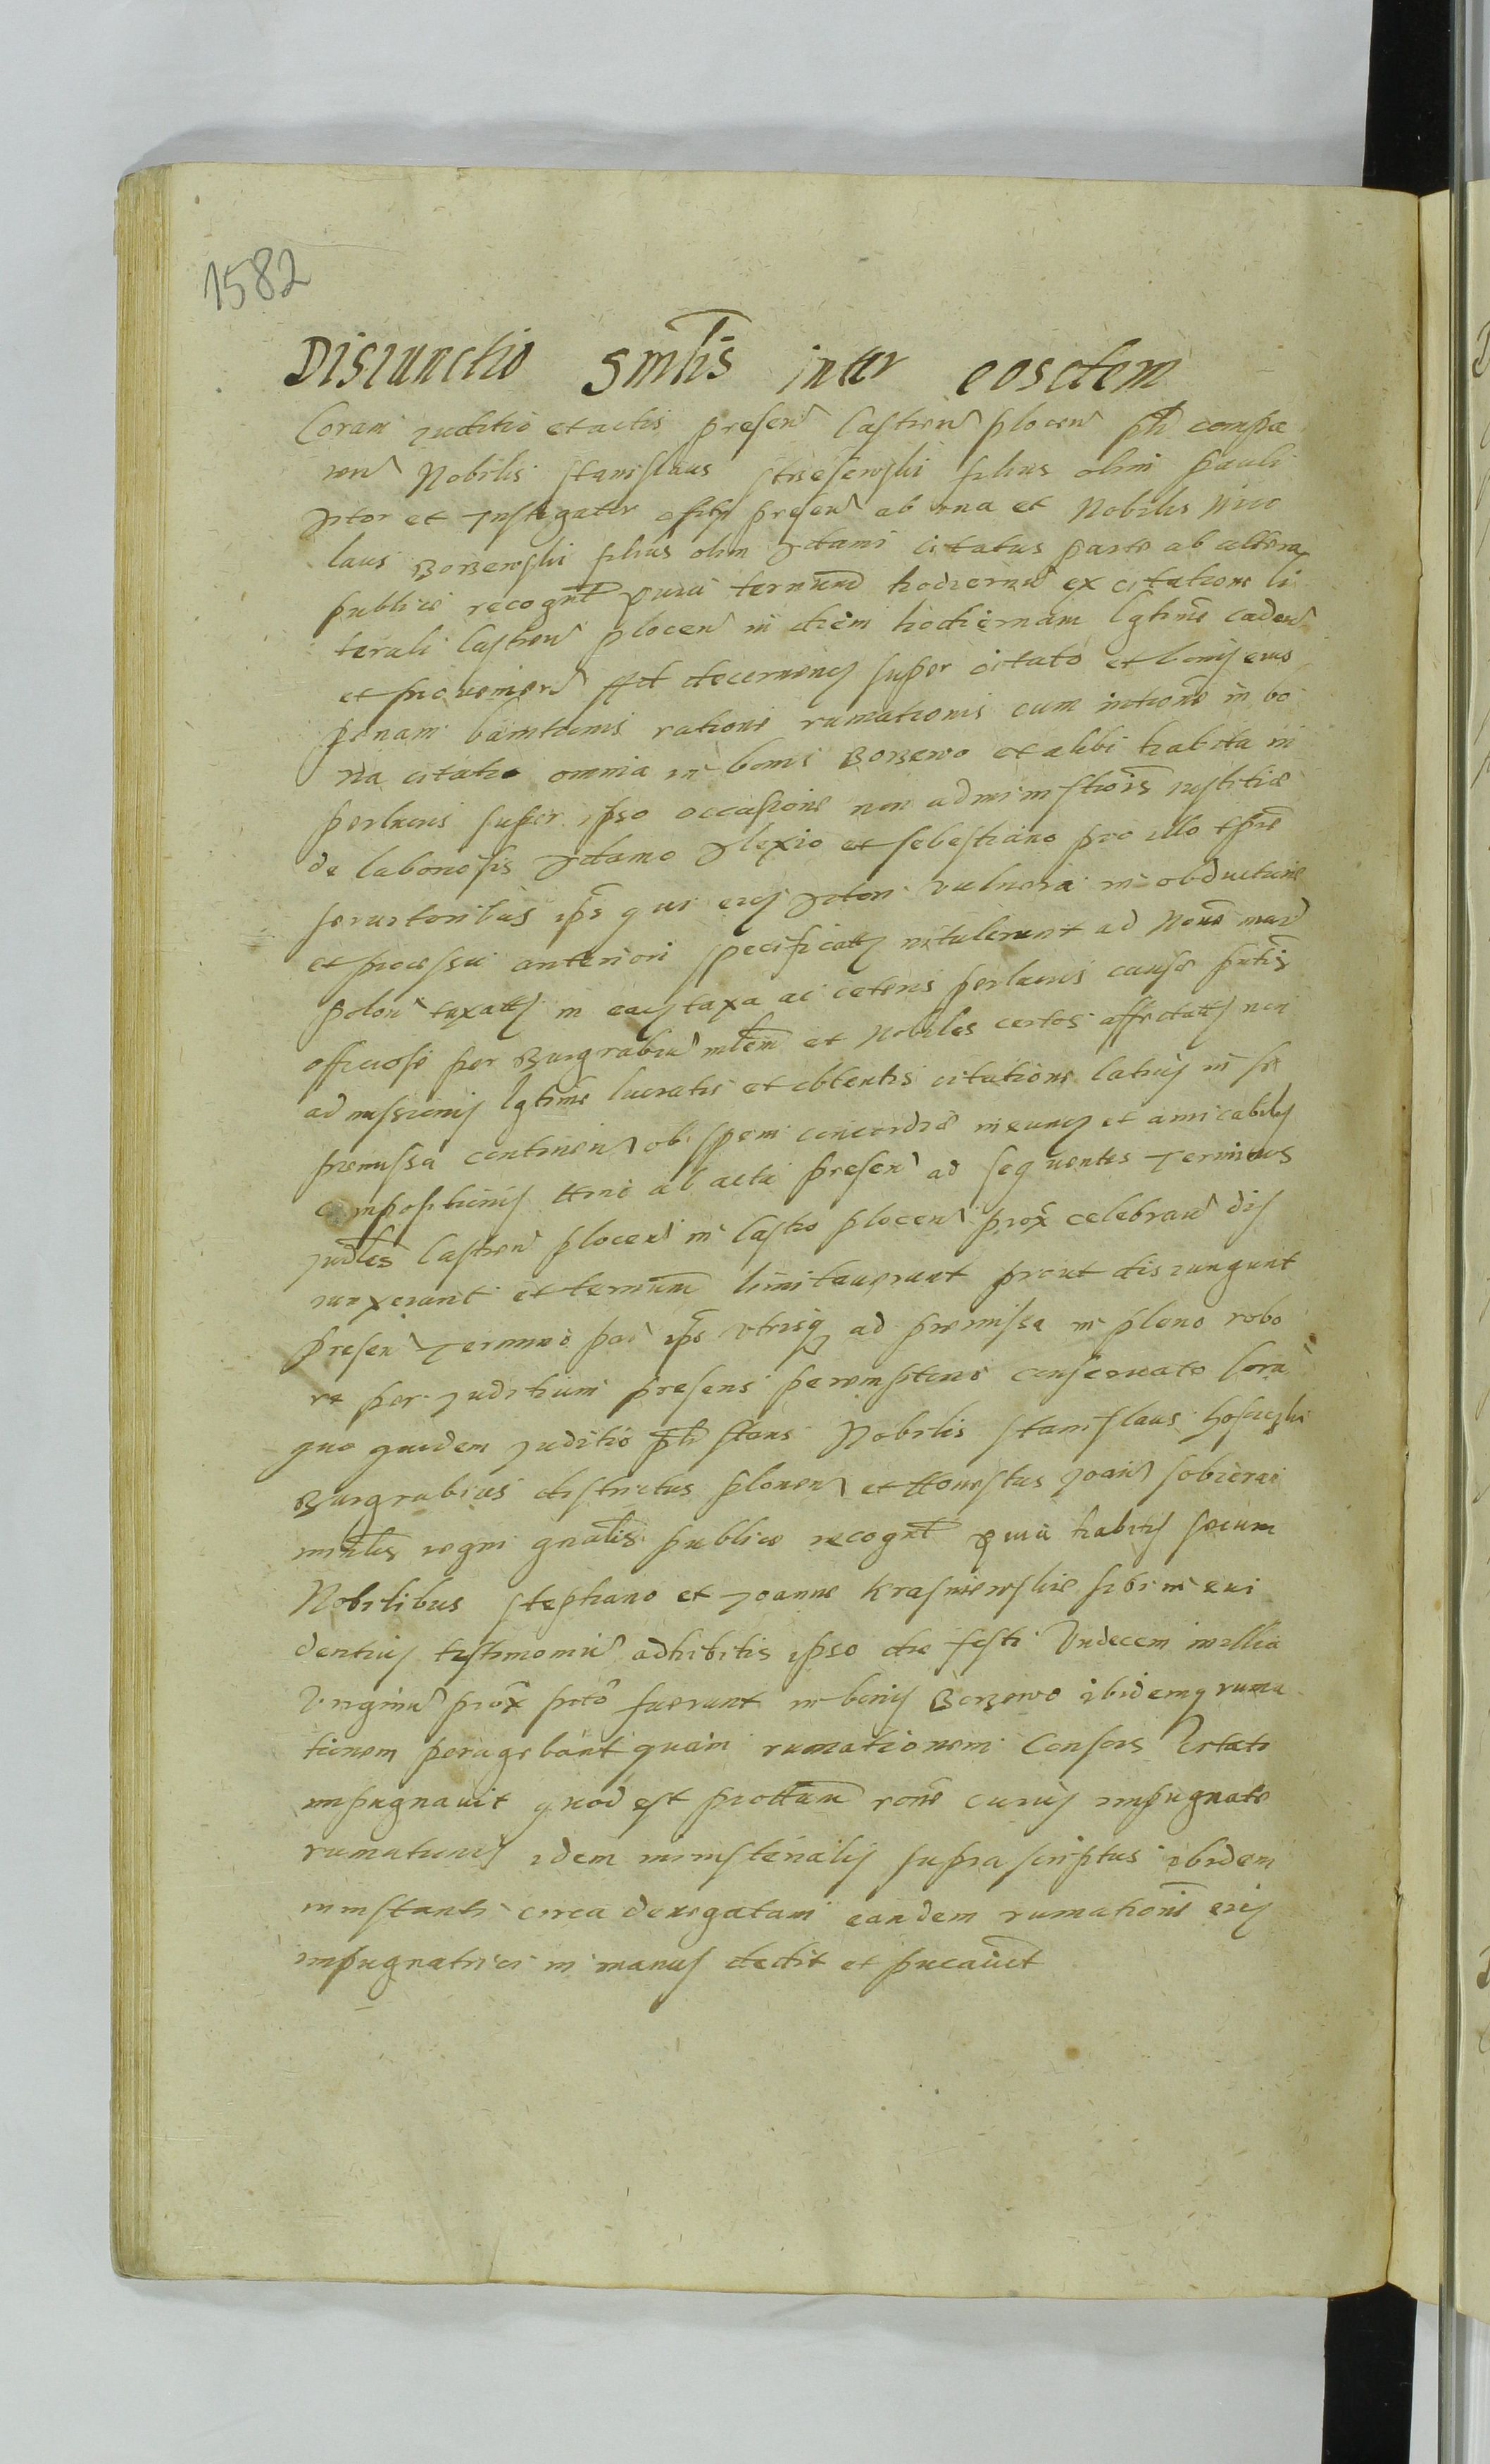 1582
Disiunctio Smlis inter eosdem
Coram juditio et actis presen Castren plocen psl compa
ren Nobilis Stanislaus filius olim Pauli
Actor et Instigator officii presen ab una et Nobilis Nico
laus Borzewski filius olim Adami citatus parte ab altera
publice recognt Quia terminum hodiernum ex citatione li
terali Castren plocen in diem hodiernam lgtime caden
et provenien ad decernen super citato et bonis eius
penam banitionis ratione rumationis cum intione in bo
na citati omnia in bonis Borzewo et alibi habita in
perlucris super ipso occasione non administrois iustitiae
de laboriosis Adamo Alexio et Sebestiano pro illo tpre
servitoribus ips qui eius Actori vulnera in obductione
et processu anteriori specificatt intulerunt ad Novem mar
polon taxatt in eaque taxa ac ceteris perlucris causae
officiose per Burgrabium mlem et Nobiles certos affectatt non
admissionis lgtime lucratis et obtentis citatione latius in se
premissa continen ob spem concordiae ineunde et amicabilis
compositionis ab actu presen ad sequentes Terminos
Judles Castren plocen in Castro plocen prox celebran dis
iunxerunt et terminum limitaverunt prout disiungunt
presen Termino par ips utrisque ad premissa in pleno robo
re per Juditium presens peremptorie conservato Coram
quo quidem Juditio psl stans Nobilis Stanislaus
Burgrabius districtus plonen et Honestus Joan Sobieraj
minlis regni gnalis publice recognt Quia habitis secum
Nobilibus Stephano et Joanne Krasniewskie sibi in evi
dentius testimonium adhibitis ipso die festi Undecem millia
Virginum prox prto fuerunt in bonis Borzewo ibidemque ruma
tionem peragebant quam rumationem Consors Citati
impugnavit quod est prottatum rone cuius impugnate
rumationis idem ministerialis supra scriptus ibidem
in instanti circa denegatam eandem rumationem eius
impugnatrici in manus dedit et